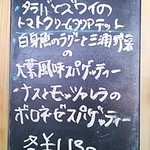 トマトクリームフリアテット
白身魚のラグーと三浦野菜
の
大葉風味スパゲッティー
・ナスとモッツァレラの
ボロネーゼスパゲッティー
各¥1,180